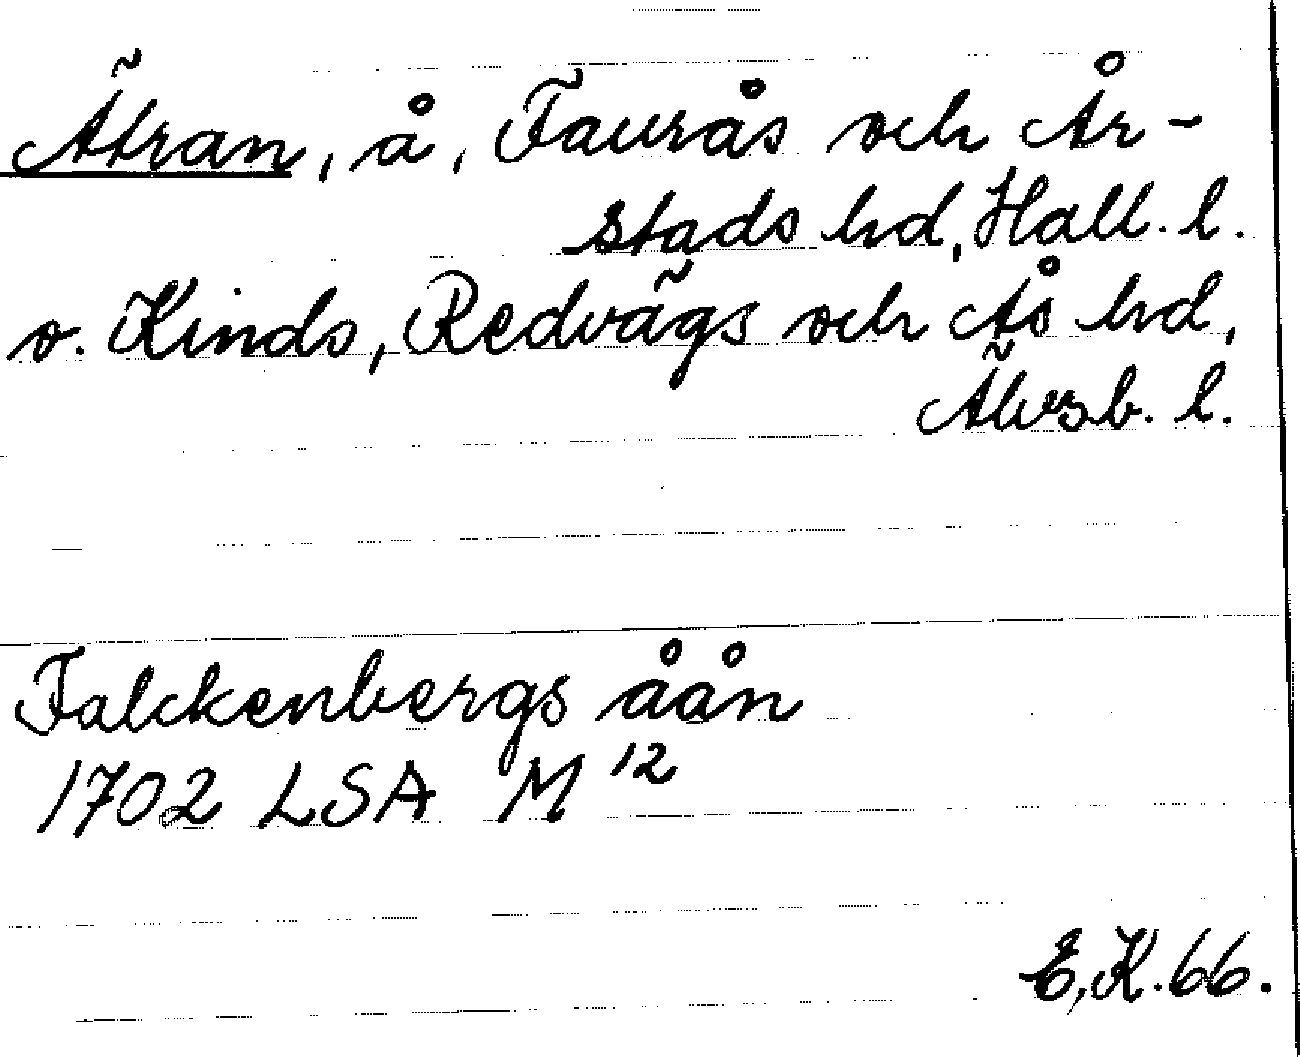 Ätran, å, Faurås och År-
stads hd, Hall. l.
o. Kinds, Redvägs och Ås hd,
Älvsb. l.
Falckenbergs åån
1702 LSA M 12
E.K. 66.